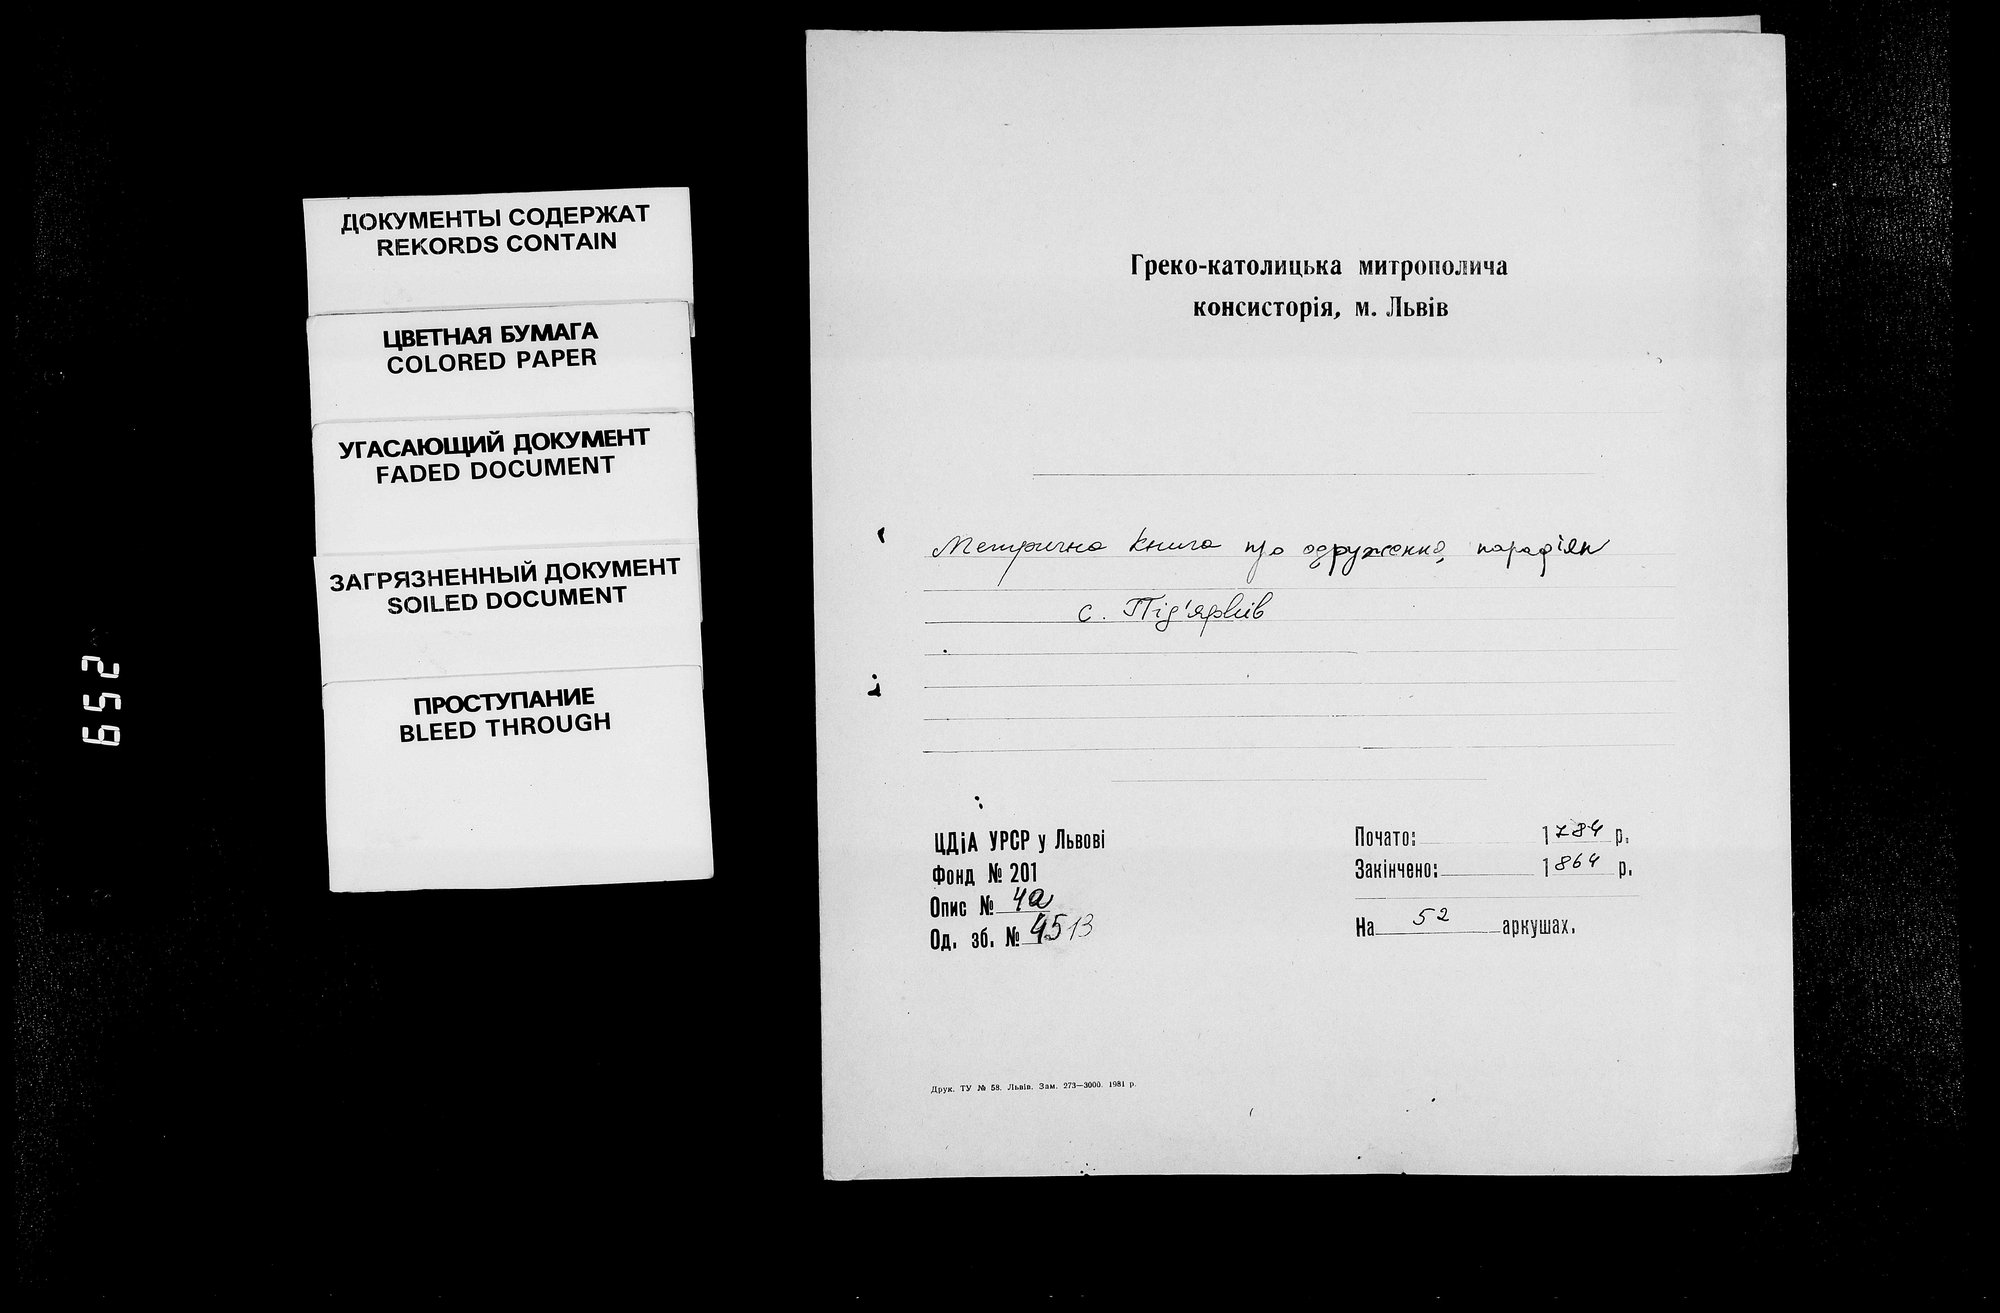 ДОКУМЕНТЫ СОДЕРЖАТ
REKORDS CONTAIN
ЦВЕТНАЯ БУМАГА
COLORED PAPER
УГАСАЮЩИЙ ДОКУМЕНТ
FADED DOCUMENT
ЗАГРЯЗНЕННЫЙ ДОКУМЕНТ
SOILED DOCUMENT
ПРОСТУПАНИЕ
BLEED THROUGH
659
Греко-католицька митрополича
консисторія, м. Львів
Метрична книга про одруження парафіян
с. Під'ярків
ЦДіА УРСР у Львові
Фонд № 201
Опис № 4а
Од. зб. № 4513
Почато: 1784 р.
Закінчено: 1864 р.
На 52 аркушах.
Друк. ТУ № 58. Львів. Зам. 273—3000. 1981 р.